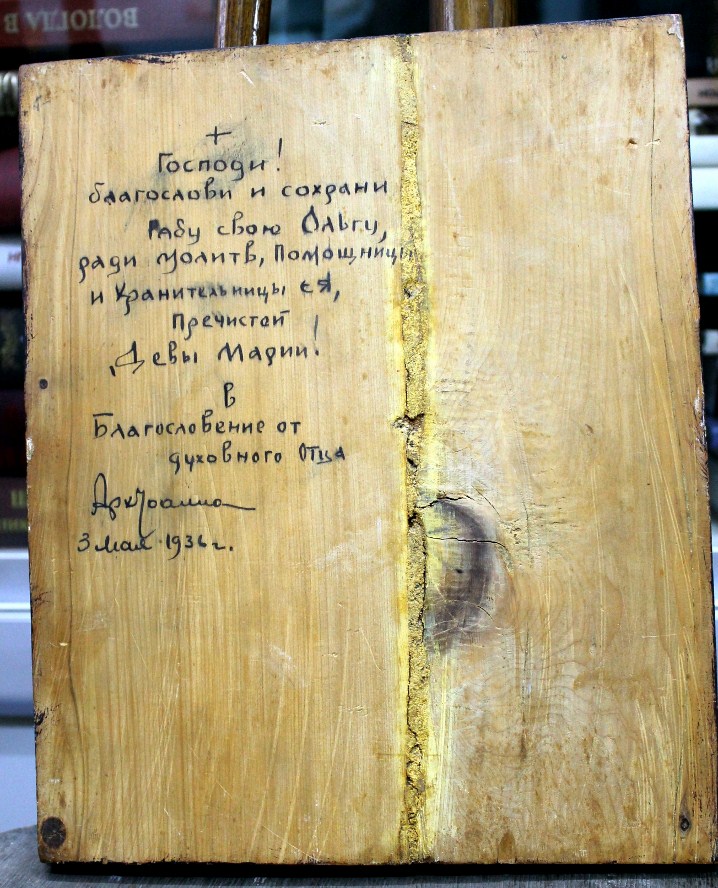 ВОЛОГДА В
+
Господи!
благослови и сохрани
рабу свою Ольгу,
ради молитв, Помощницы
и Хранительницы ея,
Пречистой
Девы Марии!
в
Благословение от
духовного Отца
3 мая 1936 г.